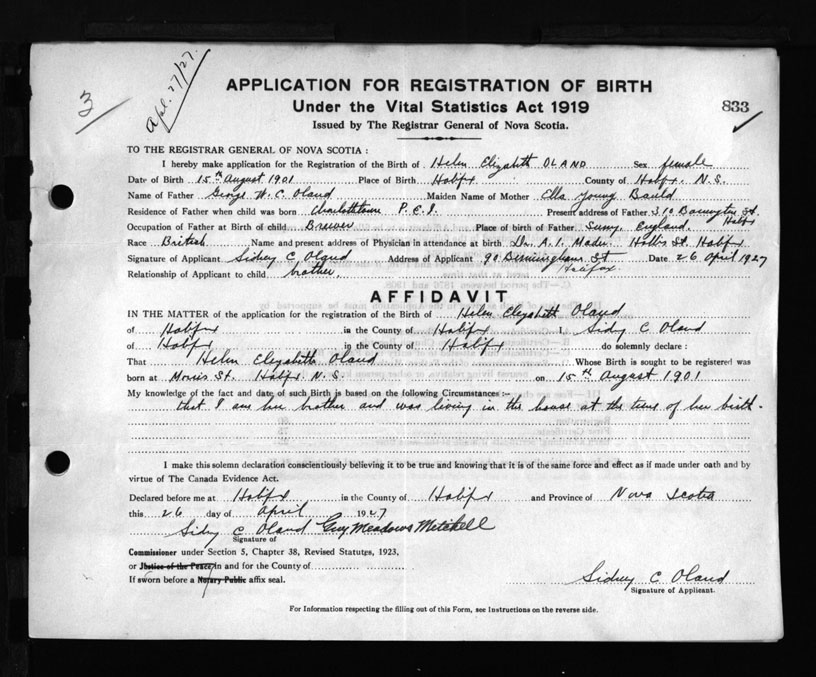 3
Apl. 27/27.
APPLICATION FOR REGISTRATION OF BIRTH
Under the Vital Statistics Act 1919
833
Issued by The Registrar General of Nova Scotia.
TO THE REGISTRAR GENERAL OF NOVA SCOTIA :
I hereby make application for the Registration of the Birth of Helen Elizabeth OLAND Sex female
Date of Birth 15th August 1901 Place of Birth Halifax County of Halifax. N.S.
Name of Father George W. C. Oland Maiden Name of Mother Ella Young Bauld
Residence of Father when child was born Charlottetown P.E.I. Present address of Father 310 Barrington St. Halifax
Occupation of Father at Birth of child Brewer Place of birth of Father Surrey, England.
Race British Name and present address of Physician in attendance at birth Dr. A. I. Mader. Hollis St. Halifax
Signature of Applicant Sidney C Oland Address of Applicant 90 Birmingham St Halifax. Date 26 April 1927
Relationship of Applicant to child brother.
AFFIDAVIT
IN THE MATTER of the application for the registration of the Birth of Helen Elizabeth Oland
of Halifax in the County of Halifax I, Sidney C Oland
of Halifax in the County of Halifax do solemnly declare :
That Helen Elizabeth Oland Whose Birth is sought to be registered was
born at Morris St. Halifax N.S. on 15th August 1901
My knowledge of the fact and date of such Birth is based on the following Circumstances :-
that I am her brother and was living in the house at the time of her birth.
I make this solemn declaration conscientiously believing it to be true and knowing that it is of the same force and effect as if made under oath and by
virtue of The Canada Evidence Act.
Declared before me at Halifax in the County of Halifax and Province of Nova Scotia
this 26 day of April 1927
Sidney C Oland Guy Meadows Mitchell
Signature of
Commissioner under Section 5, Chapter 38, Revised Statutes, 1923,
or Justice of the Peace in and for the County of
If sworn before a Notary Public affix seal.
Sidney C Oland
Signature of Applicant.
For Information respecting the filling out of this Form, see Instructions on the reverse side.